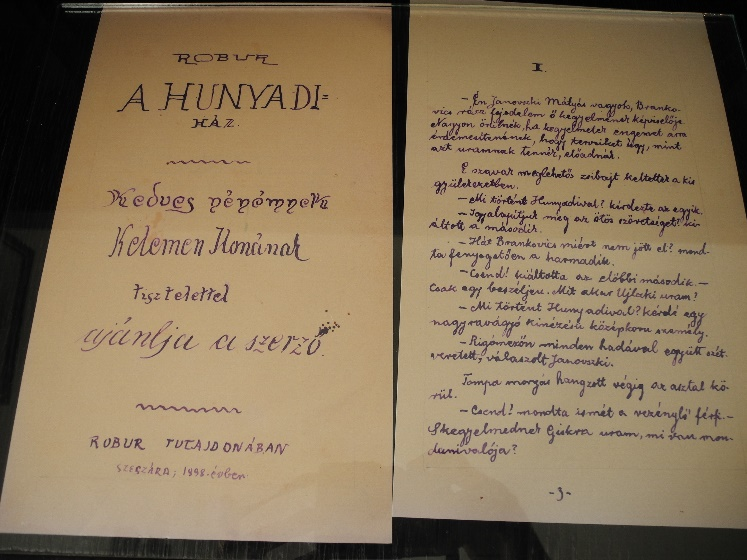 ROBUR
A HUNYADI=
HÁZ.
Kedves nénémnek
Kelemen Ilonának
tisztelettel
ajánlja a szerző.
ROBUR TULAJDONÁBAN
SZEGZÁRD, 1898. évben
I.
– Én Janovszki Mátyás vagyok, Branko-
vics rácz fejedelem ő kegyelmének képviselője
Nagyon örülnék, ha kegyelmetek engemet arra
érdemesítenének, hogy terveiket úgy, mint
azt uramnak tennék, előadnák.
E szavak meglehetős zsibajt keltettek a kis
gyülekezetben.
– Mi történt Hunyadival? kérdezte az egyik.
– Igyalapítjuk meg az ötös szövetséget! ki-
áltott a második.
– Hát Brankovics miért nem jött el? mond-
ta fenyegetően a harmadik.
– Csend! kiáltotta az előbbi második. –
Csak egy beszéljen. Mit akar Ujlaki uram?
– Mi történt Hunyadival? kérdé egy
nagyravágyó kinézésű középkorú személy.
– Rigómezőn minden hadával együtt szét
veretett, válaszolt Janovszki.
Tompa morgás hangzott végig az asztal kö-
rül.
– Csend! mondta ismét a vezénylő férfi. –
S kegyelmednek Giskra uram, mi van mon-
danivalója?
-3-